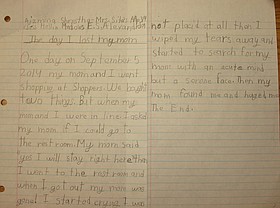 The day I lost my mom
One day on September 5
2014 my mom and I went
shopping at Shoppers. We bought
two things. But when my
mom and I were in line I asked
my mom if I could go to
the restroom. My mom said
yes I will stay right here. Then
I went to the restroom and
when I got out my mom was
gone! I started crying I was
not placed at all then I
wiped my tears away and
started to search for my
mom with an acute mind
but a serious face. Then my
mom found me and hugged me
The End.